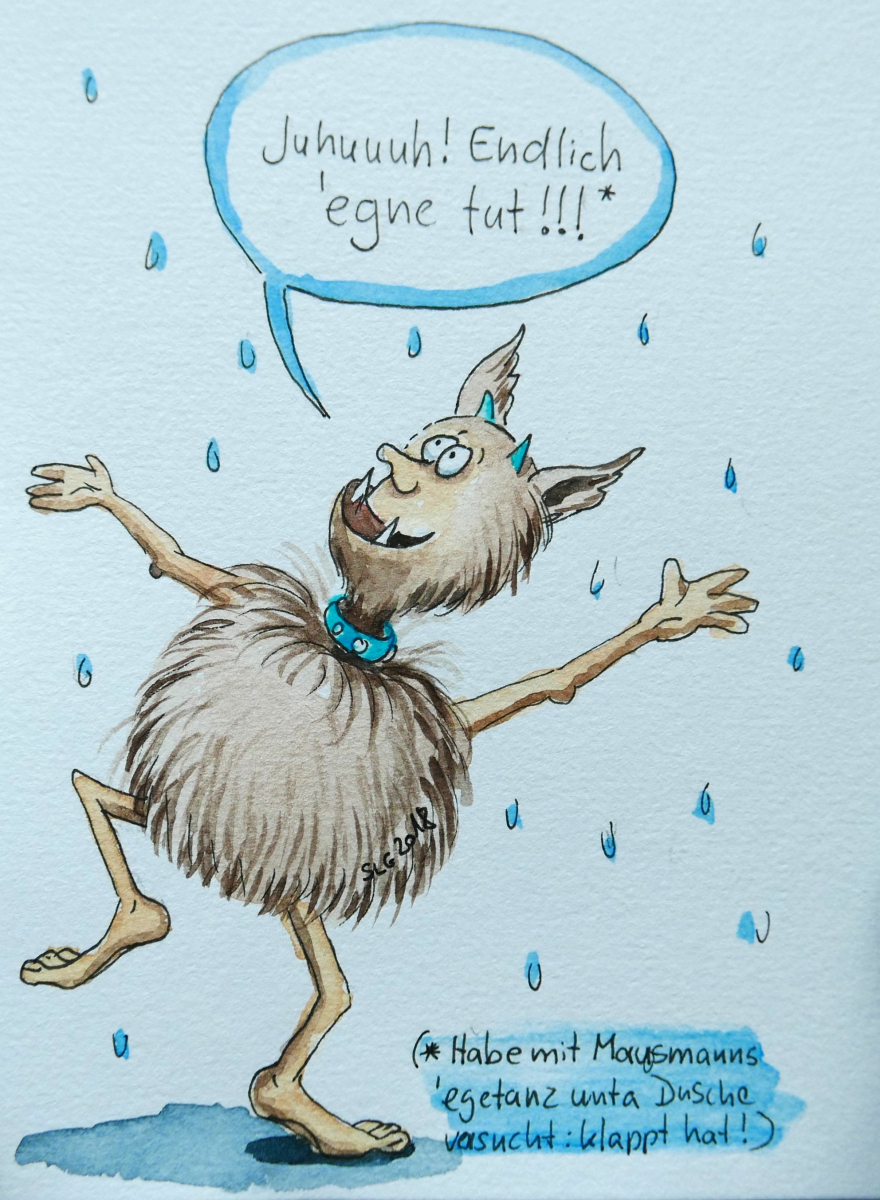 Juhuuuh! Endlich
'egne tut!!!*
SLG 2018
(* Habe mit Mausmanns
'egetanz unta Dusche
vasucht: klappt hat!)